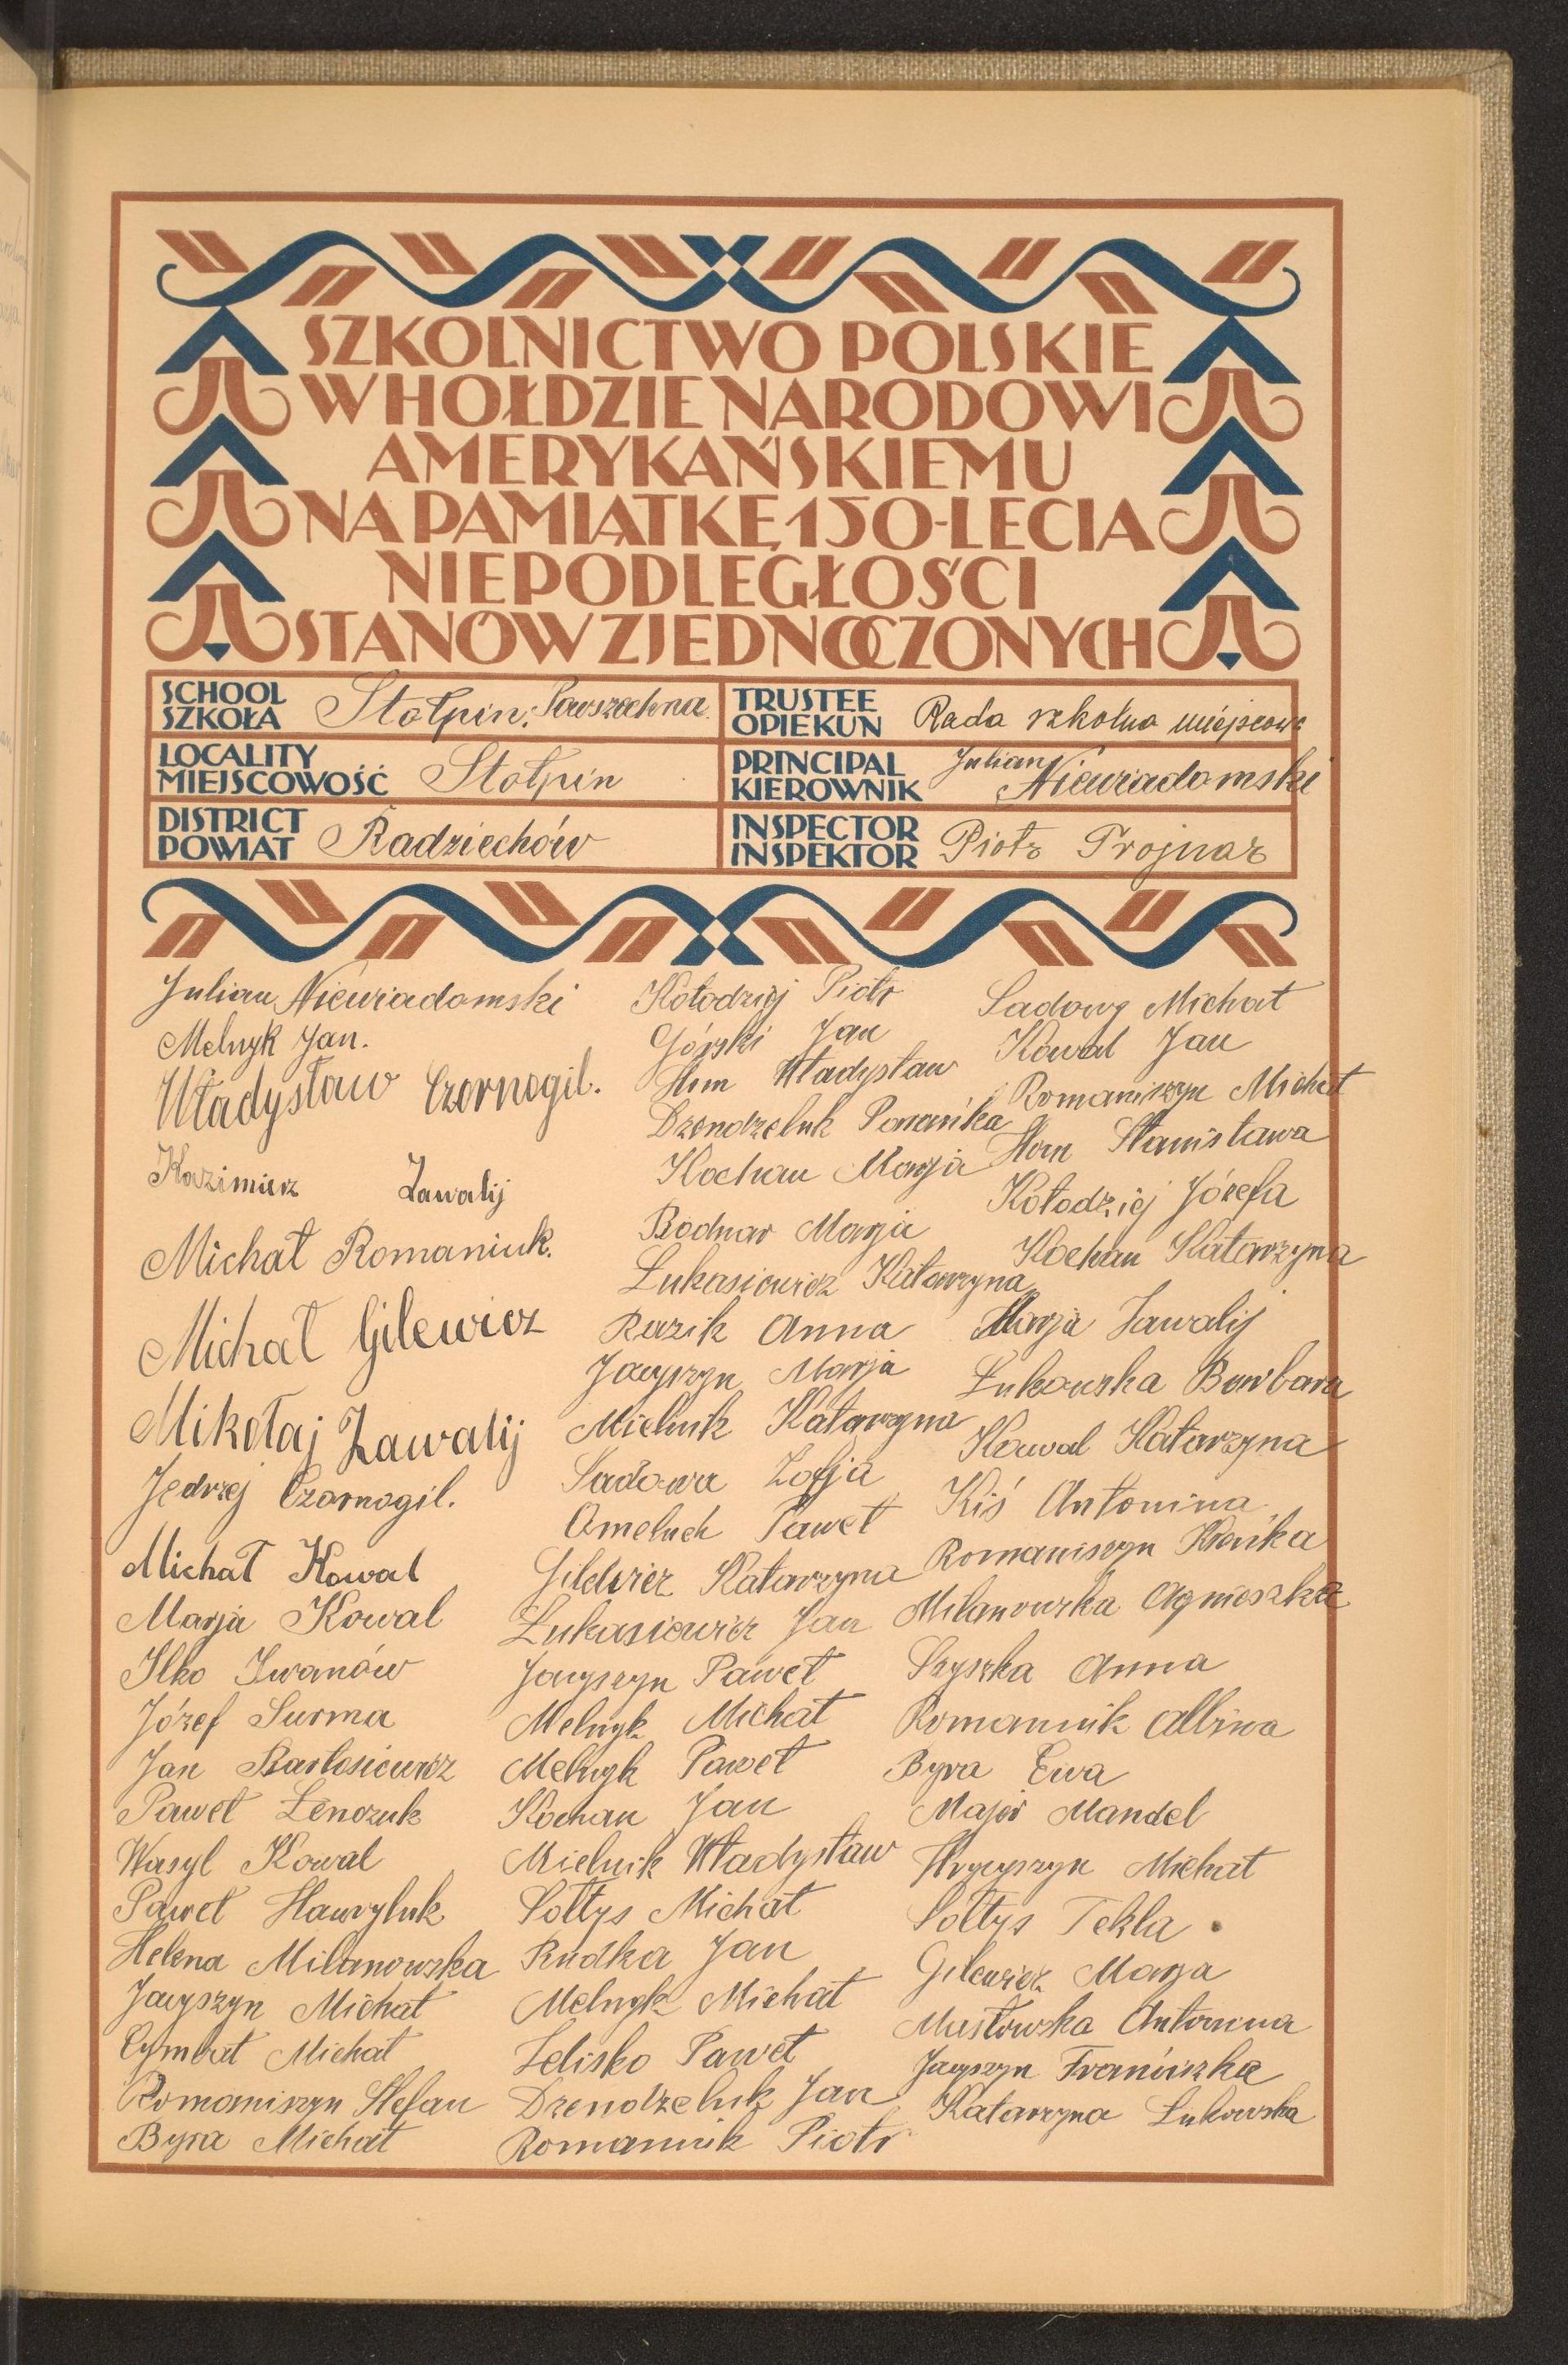 SZKOLNICTWO POLSKIE
W HOŁDZIE NARODOWI
AMERYKAŃSKIEMU
NA PAMIĄTKĘ 150-LECIA
NIEPODLEGŁOŚCI
STANÓW ZJEDNOCZONYCH
SCHOOL
SZKOŁA
Stołpin: Powszechna.
TRUSTEE
OPIEKUN
Rada szkolna miejscowa
LOCALITY
MIEJSCOWOŚĆ
Stołpin
PRINCIPAL
KIEROWNIK
Julian Niewiadomski
DISTRICT
POWIAT
Radziechów
INSPECTOR
INSPEKTOR
Piotr Trojnar
Julian Niewiadomski
Melnyk Jan.
Władysław Czornogil.
Kazimierz Zawalij
Michał Romaniuk.
Michał Gilewicz
Mikołaj Zawalij
Jędrzej Czornogil.
Michał Kowal
Marja Kowal
Ilko Iwanów
Józef Surma
Jan Bartosiewicz
Paweł Lenczuk
Wasyl Kowal
Paweł Hawryluk
Helena Milanowska
Jacyszyn Michał
Cymbał Michał
Romaniszyn Stefan
Byra Michał
Kołodziej Piotr
Górski Jan
Hom Władysław
Drendzeluk
Kochan Marja
Bodnar Marja
Łukasiewicz Katarzyna
Ruzik Anna
Jacyszyn Marja
Mielnik Katarzyna
Sadowa Zofja
Omeluch Paweł
Gilewicz Katarzyna
Łukasiewicz Jan
Jacyszyn Paweł
Melnyk Michał
Melnyk Paweł
Kochan Jan
Mielnik Władysław
Sołtys Michał
Rudka Jan
Melnyk Michał
Zelisko Paweł
Drendzeluk Jan
Romaniuk Piotr
Sadowy Michał
Kowal Jan
Romaniszyn Michał
Hom Stanisława
Kołodziej Józefa
Kochan Katarzyna
Marja Zawalij
Łukowska Barbara
Kowal Katarzyna
Kiś Antonina
Romaniszyn
Milanowska Agnieszka
Szyszka Anna
Romaniuk Albina
Byra Ewa
Majer Mandel
Hrycyszyn Michał
Sołtys Tekla
Gilewicz Marja
Masłowska Antonina
Jacyszyn Franciszka
Katarzyna Łukowska